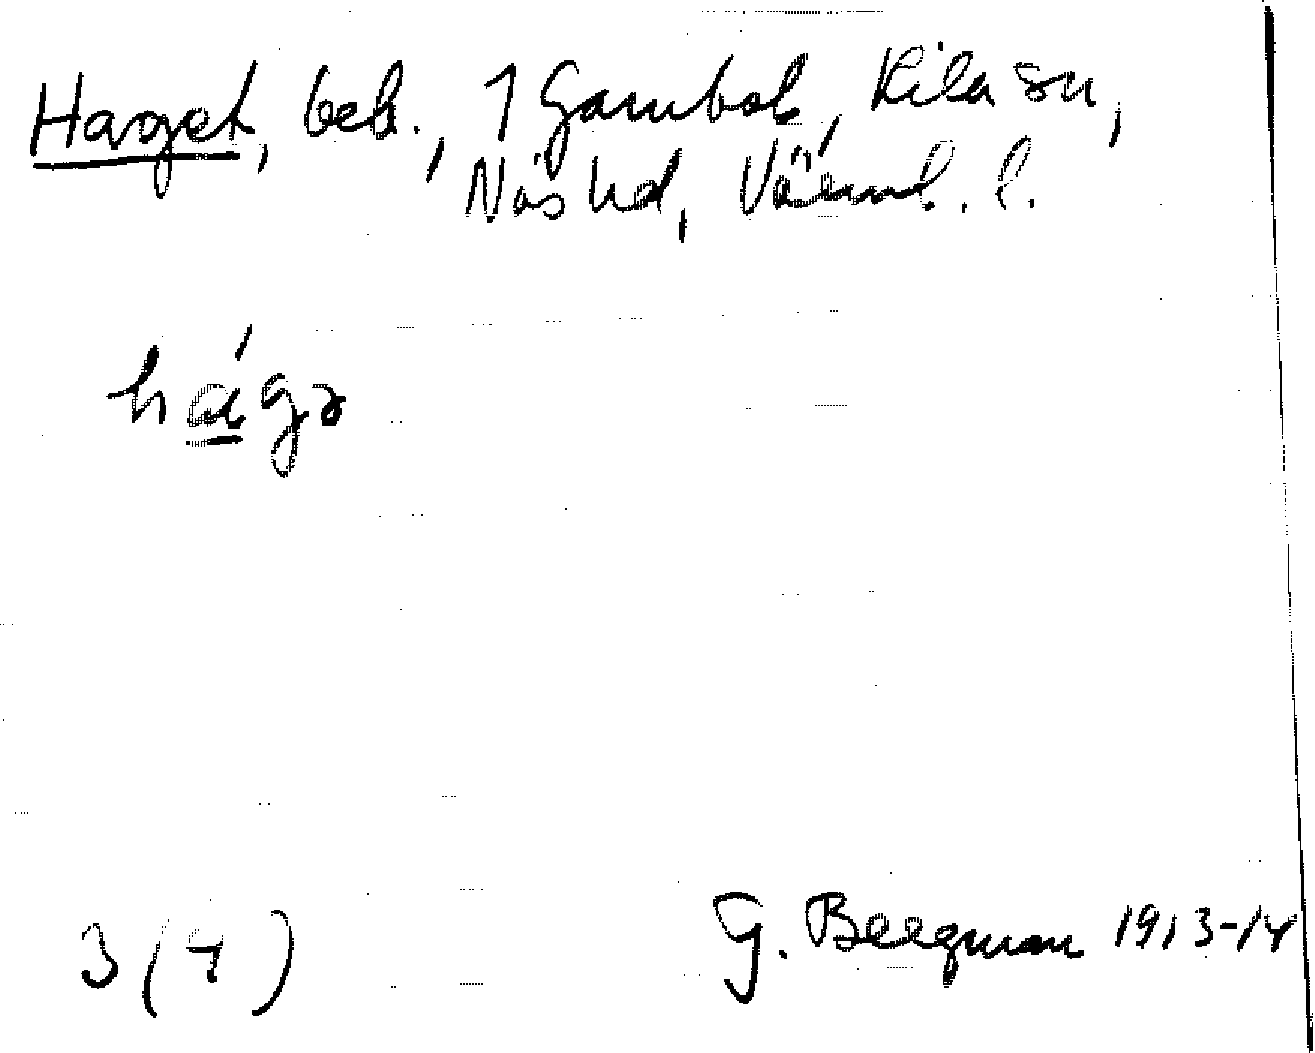 Haget, beb., 1 Gambol, Kila sn,
Näs hd, Värml. l.
hágə
3 (4)
G. Bergman 1913-14